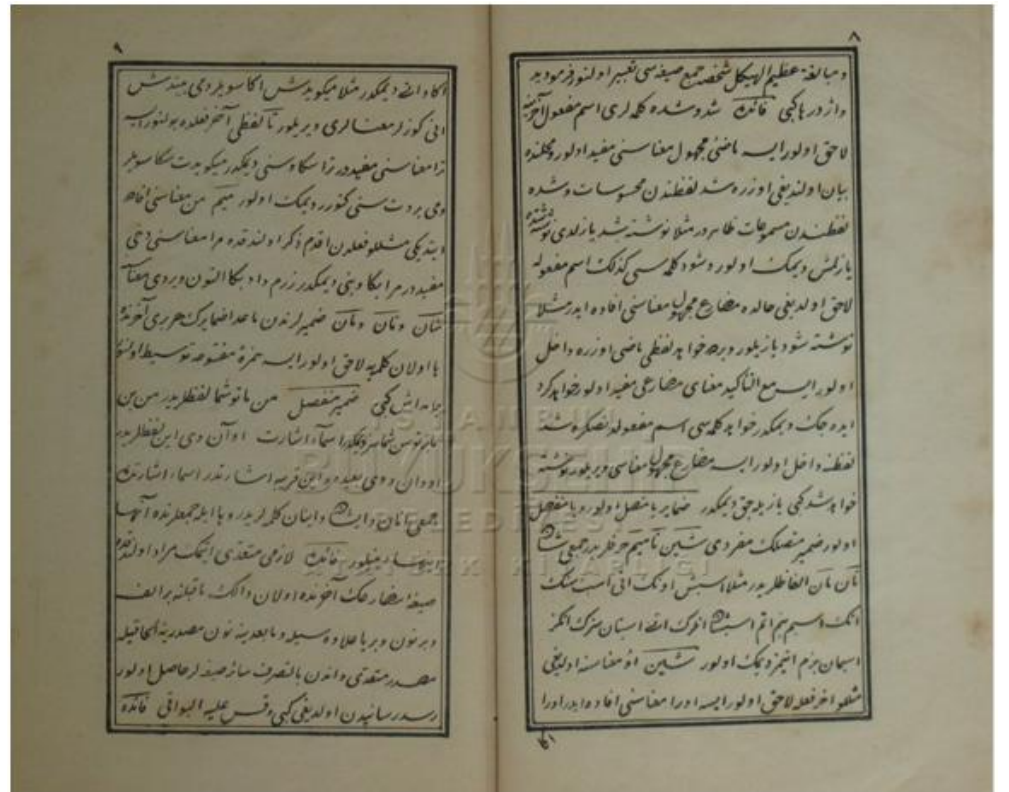 ٨
و مبالغة عظيم الهيكل شخصك جمع صيغه سى تعبير اولنور فرموديد
واژدرها كبى فائده شد وشده كلمه لرى اسم مفعول آخرينه
لاحق اولور ايسه ماضئ مجهول معناسنى مفيد اولور ومحلنده
بيان اولنديغى اوزره شد لفظندن محسوسات وشده
لفظندن مسموعات ظاهردر مثلا نوشته شد يازلدى نوشته شده
يازلمش ديمك اولور وشود كلمه سى كذلك اسم مفعوله
لاحق اولديغى حالده مضارع مجهول معناسنى افاده ايدر مثلا
نوشته شود يازيلور ويره خواهد لفظى ماضى اوزره داخل
اولور ايسه مع التأكيد معناى مضارعى مفيد اولور خواهد كرد
ايده جك ديمكدر خواهد كلمه سى اسم مفعولدنصكره شد
لفظنه داخل اولور ايسه مضارع مجهول معناسى ويريلور نوشته
خواهد شد كبى يازيله جق ديمكدر ضماير يا متصل اولور ويا منفصل
اولور ضمير متصلك مفردى شين تا ميم حرفلريدر جمعى شان
تان مان الفاظلريدر مثلا اسبش اونك اتى اسبت سنك
اتك اسبم بنم اتم اسبشان انلرك اتى اسبتان سزك اتكز
اسبمان بزم اتيمز ديمك اولور شين او معناسنه اولديغى
مثللو آخر فعله لاحق اولور ايسه اورا معناسنى افاده ايدر اورا
اكا
٩
اكا وانى ديمكدر مثلا ميكويدش اكا سويلر ومى بيندش
انى كورر معنالرى ويريلور تا لفظى آخر فعلده بولنور ايسه
ترا معناسنى مفيددر ترا سكا وسنى ديمكدر ميكويدت سكا سويلر
ومى بردت سنى كتورر ديمك اولور ميم من معناسنى افاده
ايتديكى مثللو فعلدن اقدم ذكر اولندقده مرا معناسنى دخى
مفيددر مرا بكا وبنى ديمكدر زرم داد بكا التون ويردى معناً
شان وتان ومان ضميرلرندن ماعدا ضمايرك هر برى آخرنده
ها اولان كلمه يه لاحق اولور ايسه همزهٔ مفتوحه توسيط اولنور
جامه اش كبى ضمير منفصل من ما تو شما لفظلريدر من بن
ما بز تو سن شما سز ديمكدر اسمآء اشارت او آن وى اين لفظلريدر
او وآن و وى بعيده و اين قريبه اشارتدر اسماء اشارتك
جمعى آنان وايشان واينان كلمه لريدر وها ايله جمعلرنده آنها
اينها دينيلور فائده لازمى متعدى ايتمك مراد اولندقده
صيغهٔ مضارعك آخرنده اولان دالك ماقبلنه بر الف
وبر نون وبر يا علاوه سيله مابعدينه نون مصدريه الحاقيله
مصدر متعدى واندن بالتصرف سائر صيغه لر حاصل اولور
رسد رسانيدن اولديغى كبى وقس عليه البواقى فائده